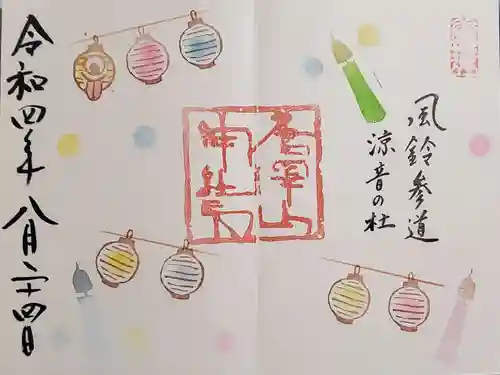 風鈴参道
涼音の杜
令和四年八月二十四日